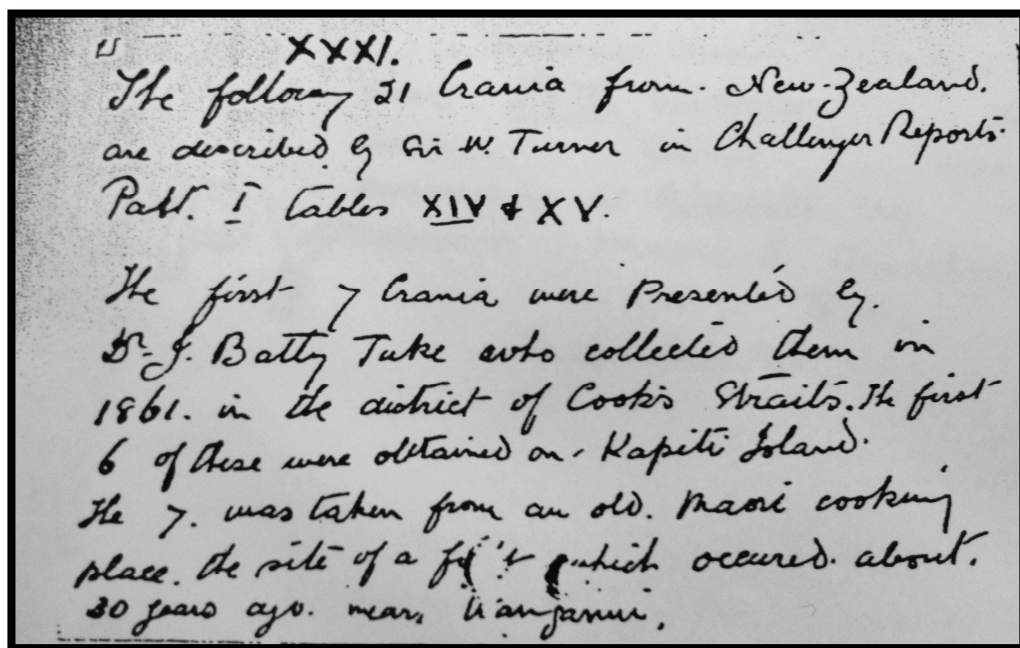 XXXI.
The following 21 Crania from. New-Zealand.
are described by Sir W. Turner in Challenger Reports.
Part. I tables XIV & XV.
The first 7 Crania were Presented by.
Dr. J. Batty Tuke who collected them in
1861. in the district of Cook's Straits. The first
6 of these were obtained on. Kapiti Island.
The 7. was taken from an old. Maori cooking
place. the site of a which occured. about.
30 years ago. near, Wanganui.